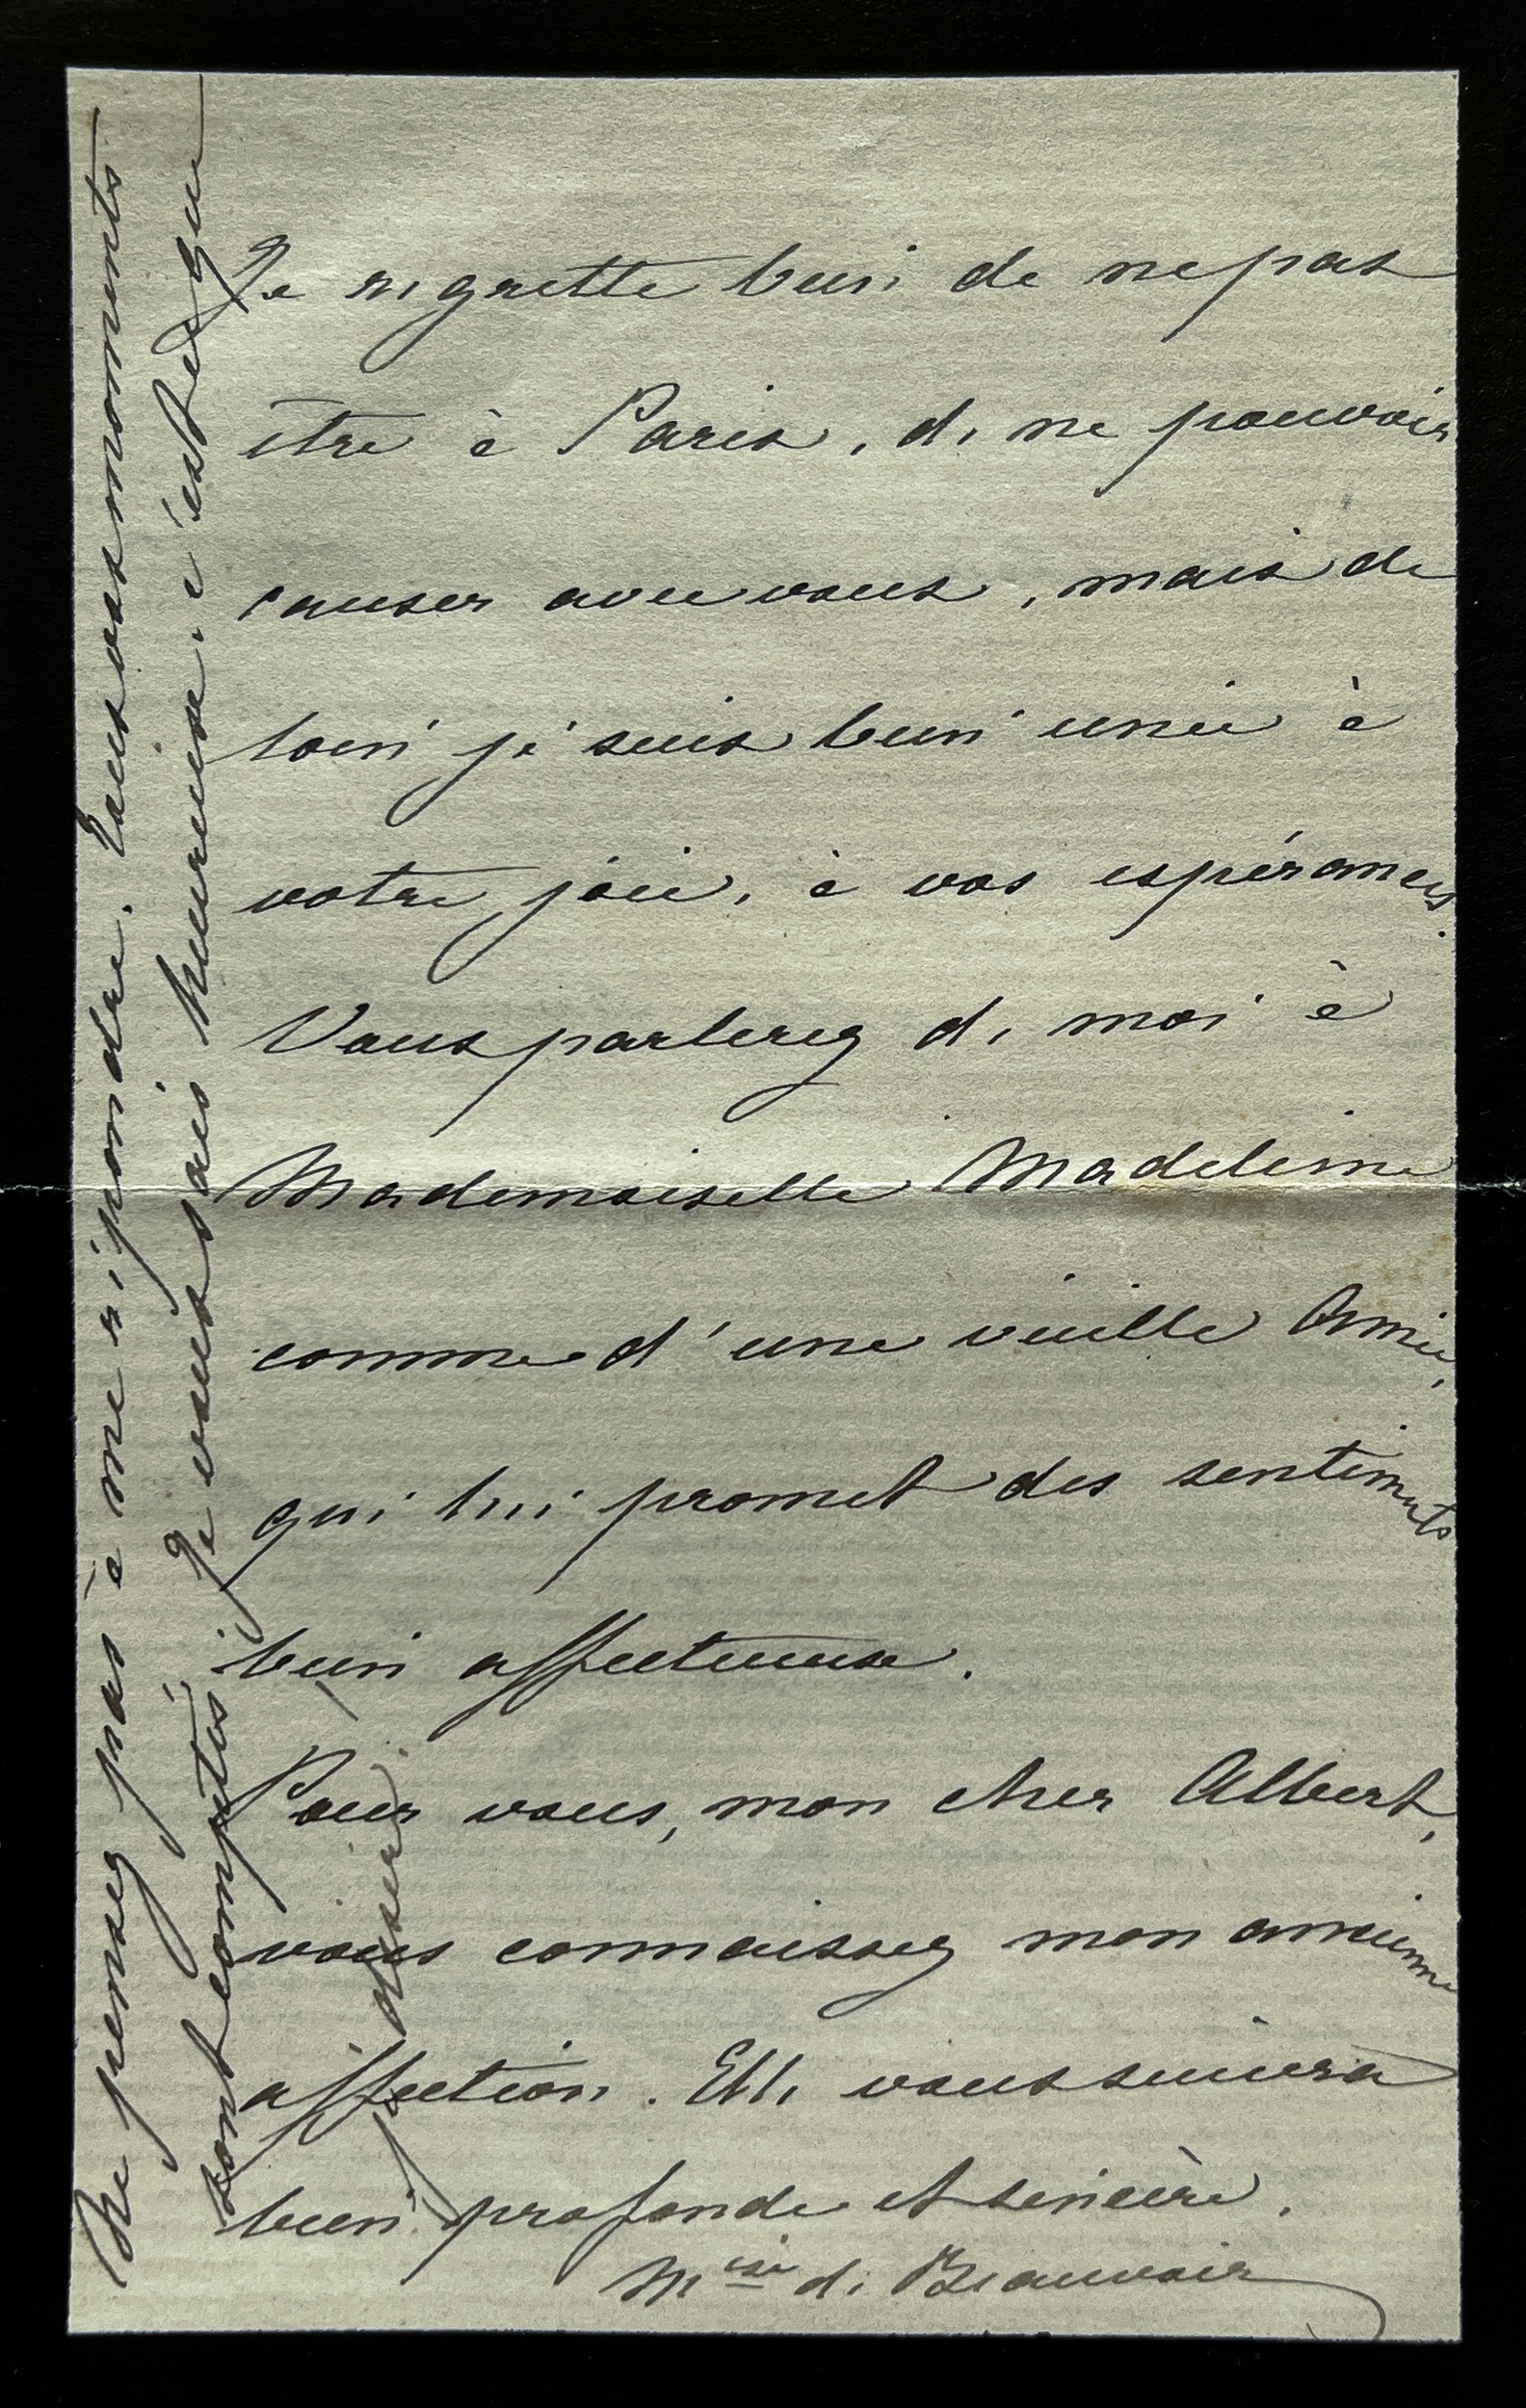 Je regrette bien de ne pas
être à Paris, de ne pouvoir
causer avec vous, mais de
loin je suis bien unie à
votre joie, à vos espérances.
Vous parlerez de moi à
Mademoiselle Madeleine
comme d'une vieille Amie,
qui lui promet des sentiments
bien affectueuse.
Pour vous, mon cher Albert,
vous connaissez mon ancienne
affection. Elle vous suivra
bien profonde et sincère.
Mise de Beauvoir
Ne pensez pas à me répondre. Tous vos moments
sont comptés; Je vous sais heureuse, c'est ce que
je désire.